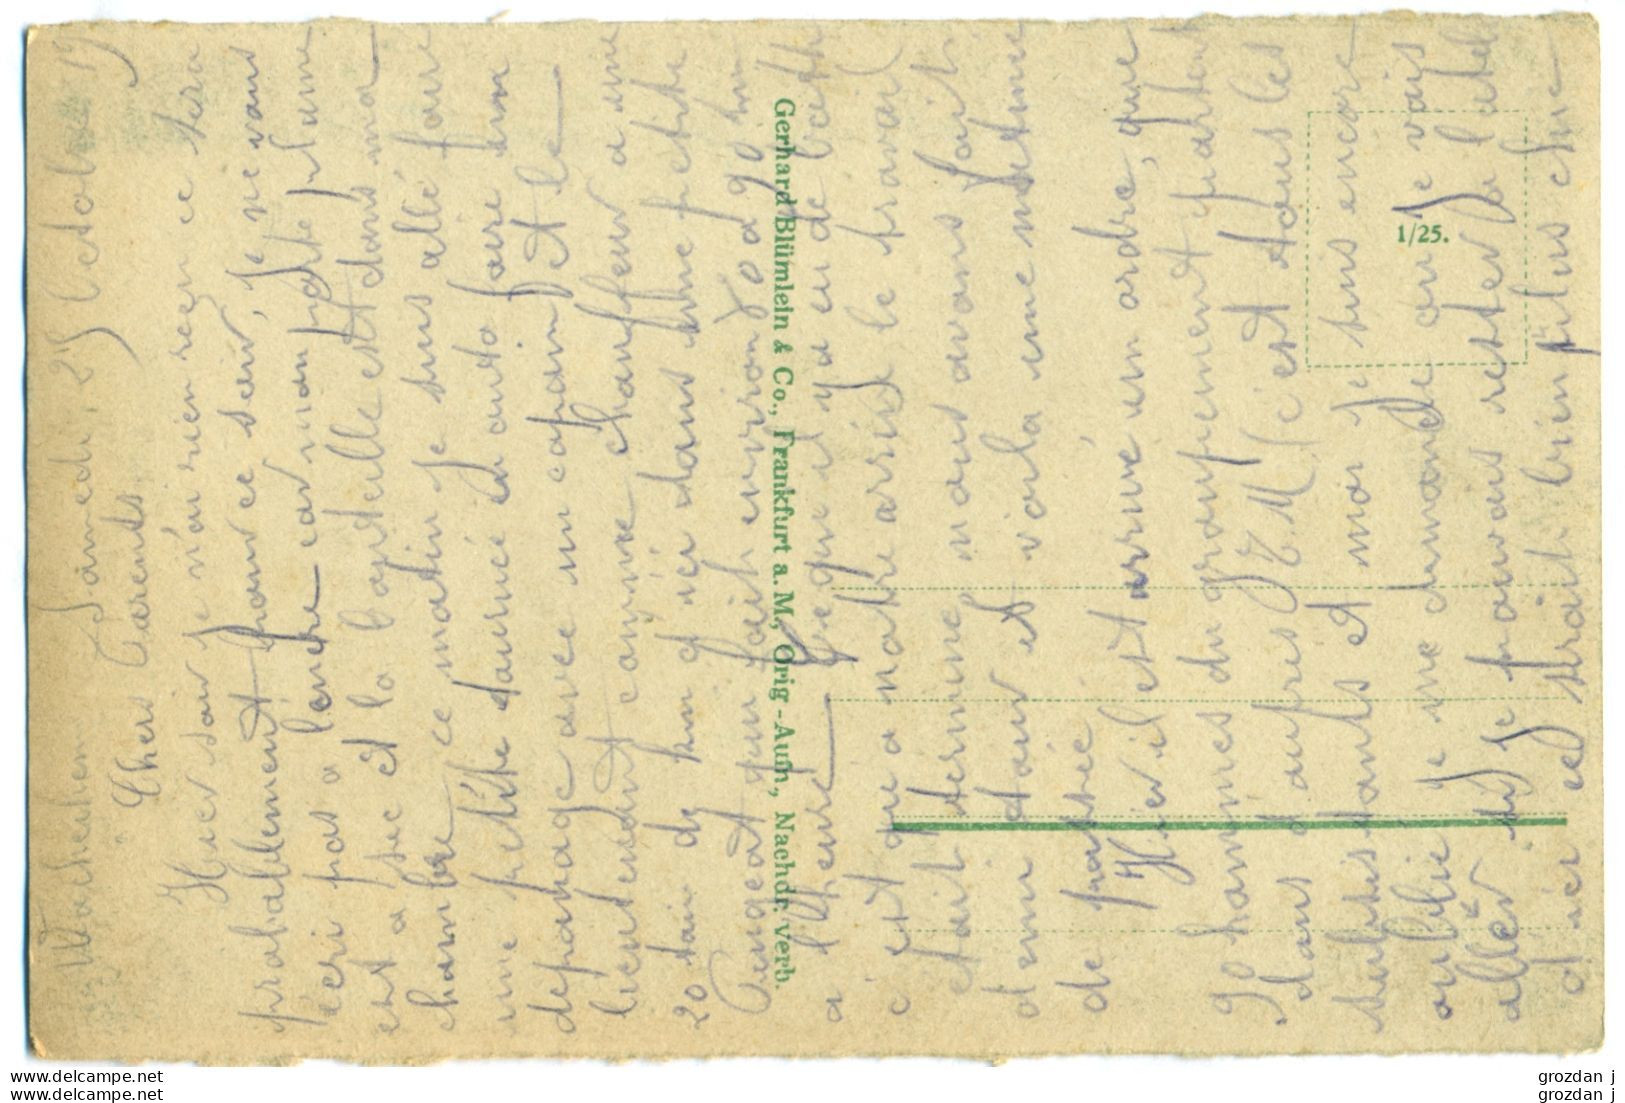 Wachenheim Samedi, 25 Octob 19
Chers Parents
Hier soir je n'ai rien reçu ce sera
probablement pour ce soir, Je ne vous
écri pas a l'encre car mon porte plume
est a sec et la bouteille est dans ma
chambre ce matin je suis allé faire
une petite tournée en auto faire un
dépanage avec un copain et le
lieutenant comme chauffeur a une
20 taine de km d'ici dans une petite
auto
a l'heure
c'est que a notre arrivé le travail
etait terminé, nous avons fait
demi tour et voila une matinée
de passée
Hier il est arrivé un ordre, que
9 hommes du groupement partent
dans d'autres T.M. (c'est tous les
et moi je suis encore
oublié je me demande ou je vais
aller si je pouvais rester a coté
d'ici ce serait bien plus chic
Gerhard Blümlein & Co., Frankfurt a. M., Orig.-Aufn., Nachdr. verb.
1/25.
grozdan j
grozdan j